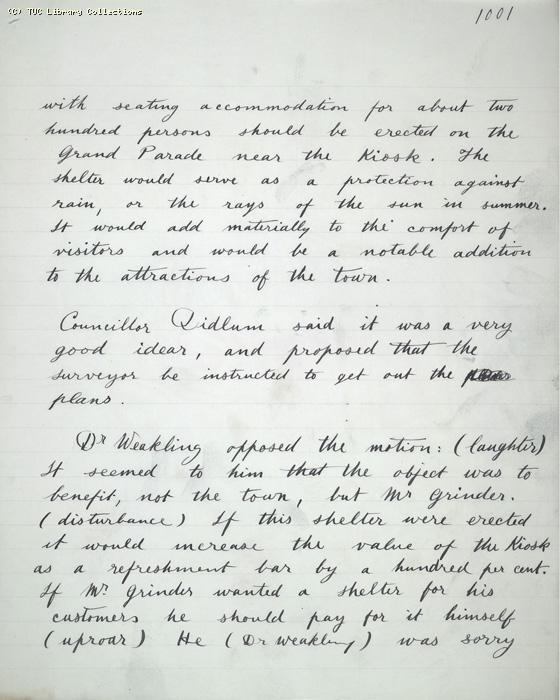 (C) TUC Library Collections
1001
with seating accommodation for about two
hundred persons should be erected on the
Grand Parade near the Kiosk. The
shelter would serve as a protection against
rain, or the rays of the sun in summer.
It would add materially to the comfort of
visitors and would be a notable addition
to the attractions of the town.
Councillor Didlum said it was a very
good idear, and proposed that the
surveyor be instructed to get out the
plans.
Dr Weakling opposed the motion: (laughter)
It seemed to him that the object was to
benefit, not the town, but Mr Grinder.
(disturbance) If this shelter were erected
it would increase the value of the Kiosk
as a refreshment bar by a hundred per cent.
If Mr. Grinder wanted a shelter for his
customers he should pay for it himself
(uproar) He (Dr Weakling) was sorry